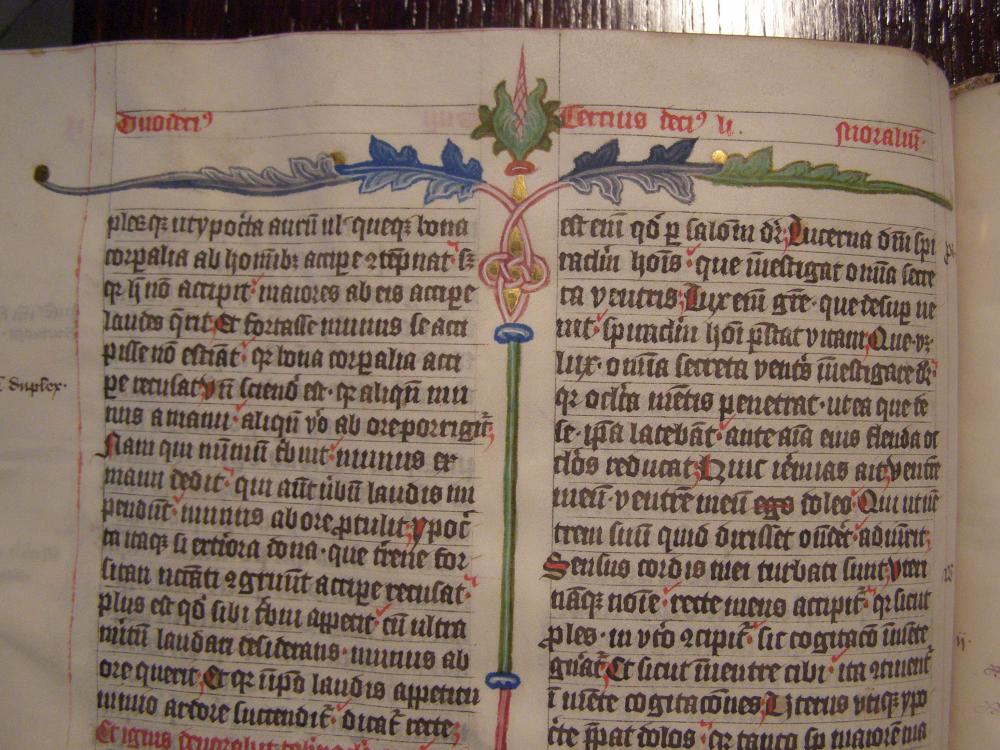 Duodeci⁹
Tercius deci⁹ li.
moralium·
ples qꝫ ut ypoc̄ta aurū ul' queqꝫ bona
corꝑalia ab hom̄ibꝫ accipe ⁊tēp̄nat· sꝫ
qꝛ h̄ nō accipit· maiores ab eis accipe
laudes q̄rit; Et fortasse munus se acci
pisse nō estiāt· qꝛ bona corꝑalia acci
pe recusat; Vn̄ sciend̄ est· qꝛ aliqn̄ mu
nus a manu· aliqn̄ v̄o ab ore porrigit᷑;
Nam qui nūmū t̄buit· munus ex
manu dedit· qui aut̄ ūbū laudis im
pendit· munus ab ore ꝓtulit; ypoc̄
ta itaqꝫ si ext̄iora dona· que t̄rene for
sitan nc̄c̄ati ⁊gruūt accipe recusat·
plus est qd̄ sibi t̄bui appetit· cū ultra
mō̄tū laudari desiderans· munus ab
ore querit; Et qꝛ ī ip̄o laudis appetitu
nimio ardore succendit᷑· dicat᷑ recte;
Et ignis devorabit
est eni qd̄ ꝑ salom̄ dr̄; Lucerna dn̄i spi
raclm̄ hoīs· que īuestigat om̄ia secre
ta ventris; Lux eni gr̄e· que desup ue
nit· spiraclm̄ hoī p̄stat ad vitam; Que vꝫ
lux· om̄ia secreta vent̄s īuestigare dr̄·
qꝛ occl̄ta mētis penetrat· ut ea que de
se ip̄a latebāt· ante aīa eius flenda oc
cl̄os reducat; Huic iēmias ait; ventrē
meū· ventrē meū ego doleo; Qui ut uē
trem suū quid dixisset oñdet· adiunxit;
Sensus cordis mei turbati sunt; Ventri
nāqꝫ noīe· recte mens accipit᷑· qꝛ sicut
ples· in vt̄o ⁊cipit᷑· sic cogitac̄o ī mēte
gn̄at᷑; Et sicut ī uentre cibi· ita ⁊tinent᷑
ī mēte cogitac̄ones; Uterus utiqꝫ ypo
c̄te p̄parat dolos· qꝛ tanto sp maiorē ma
duplex·